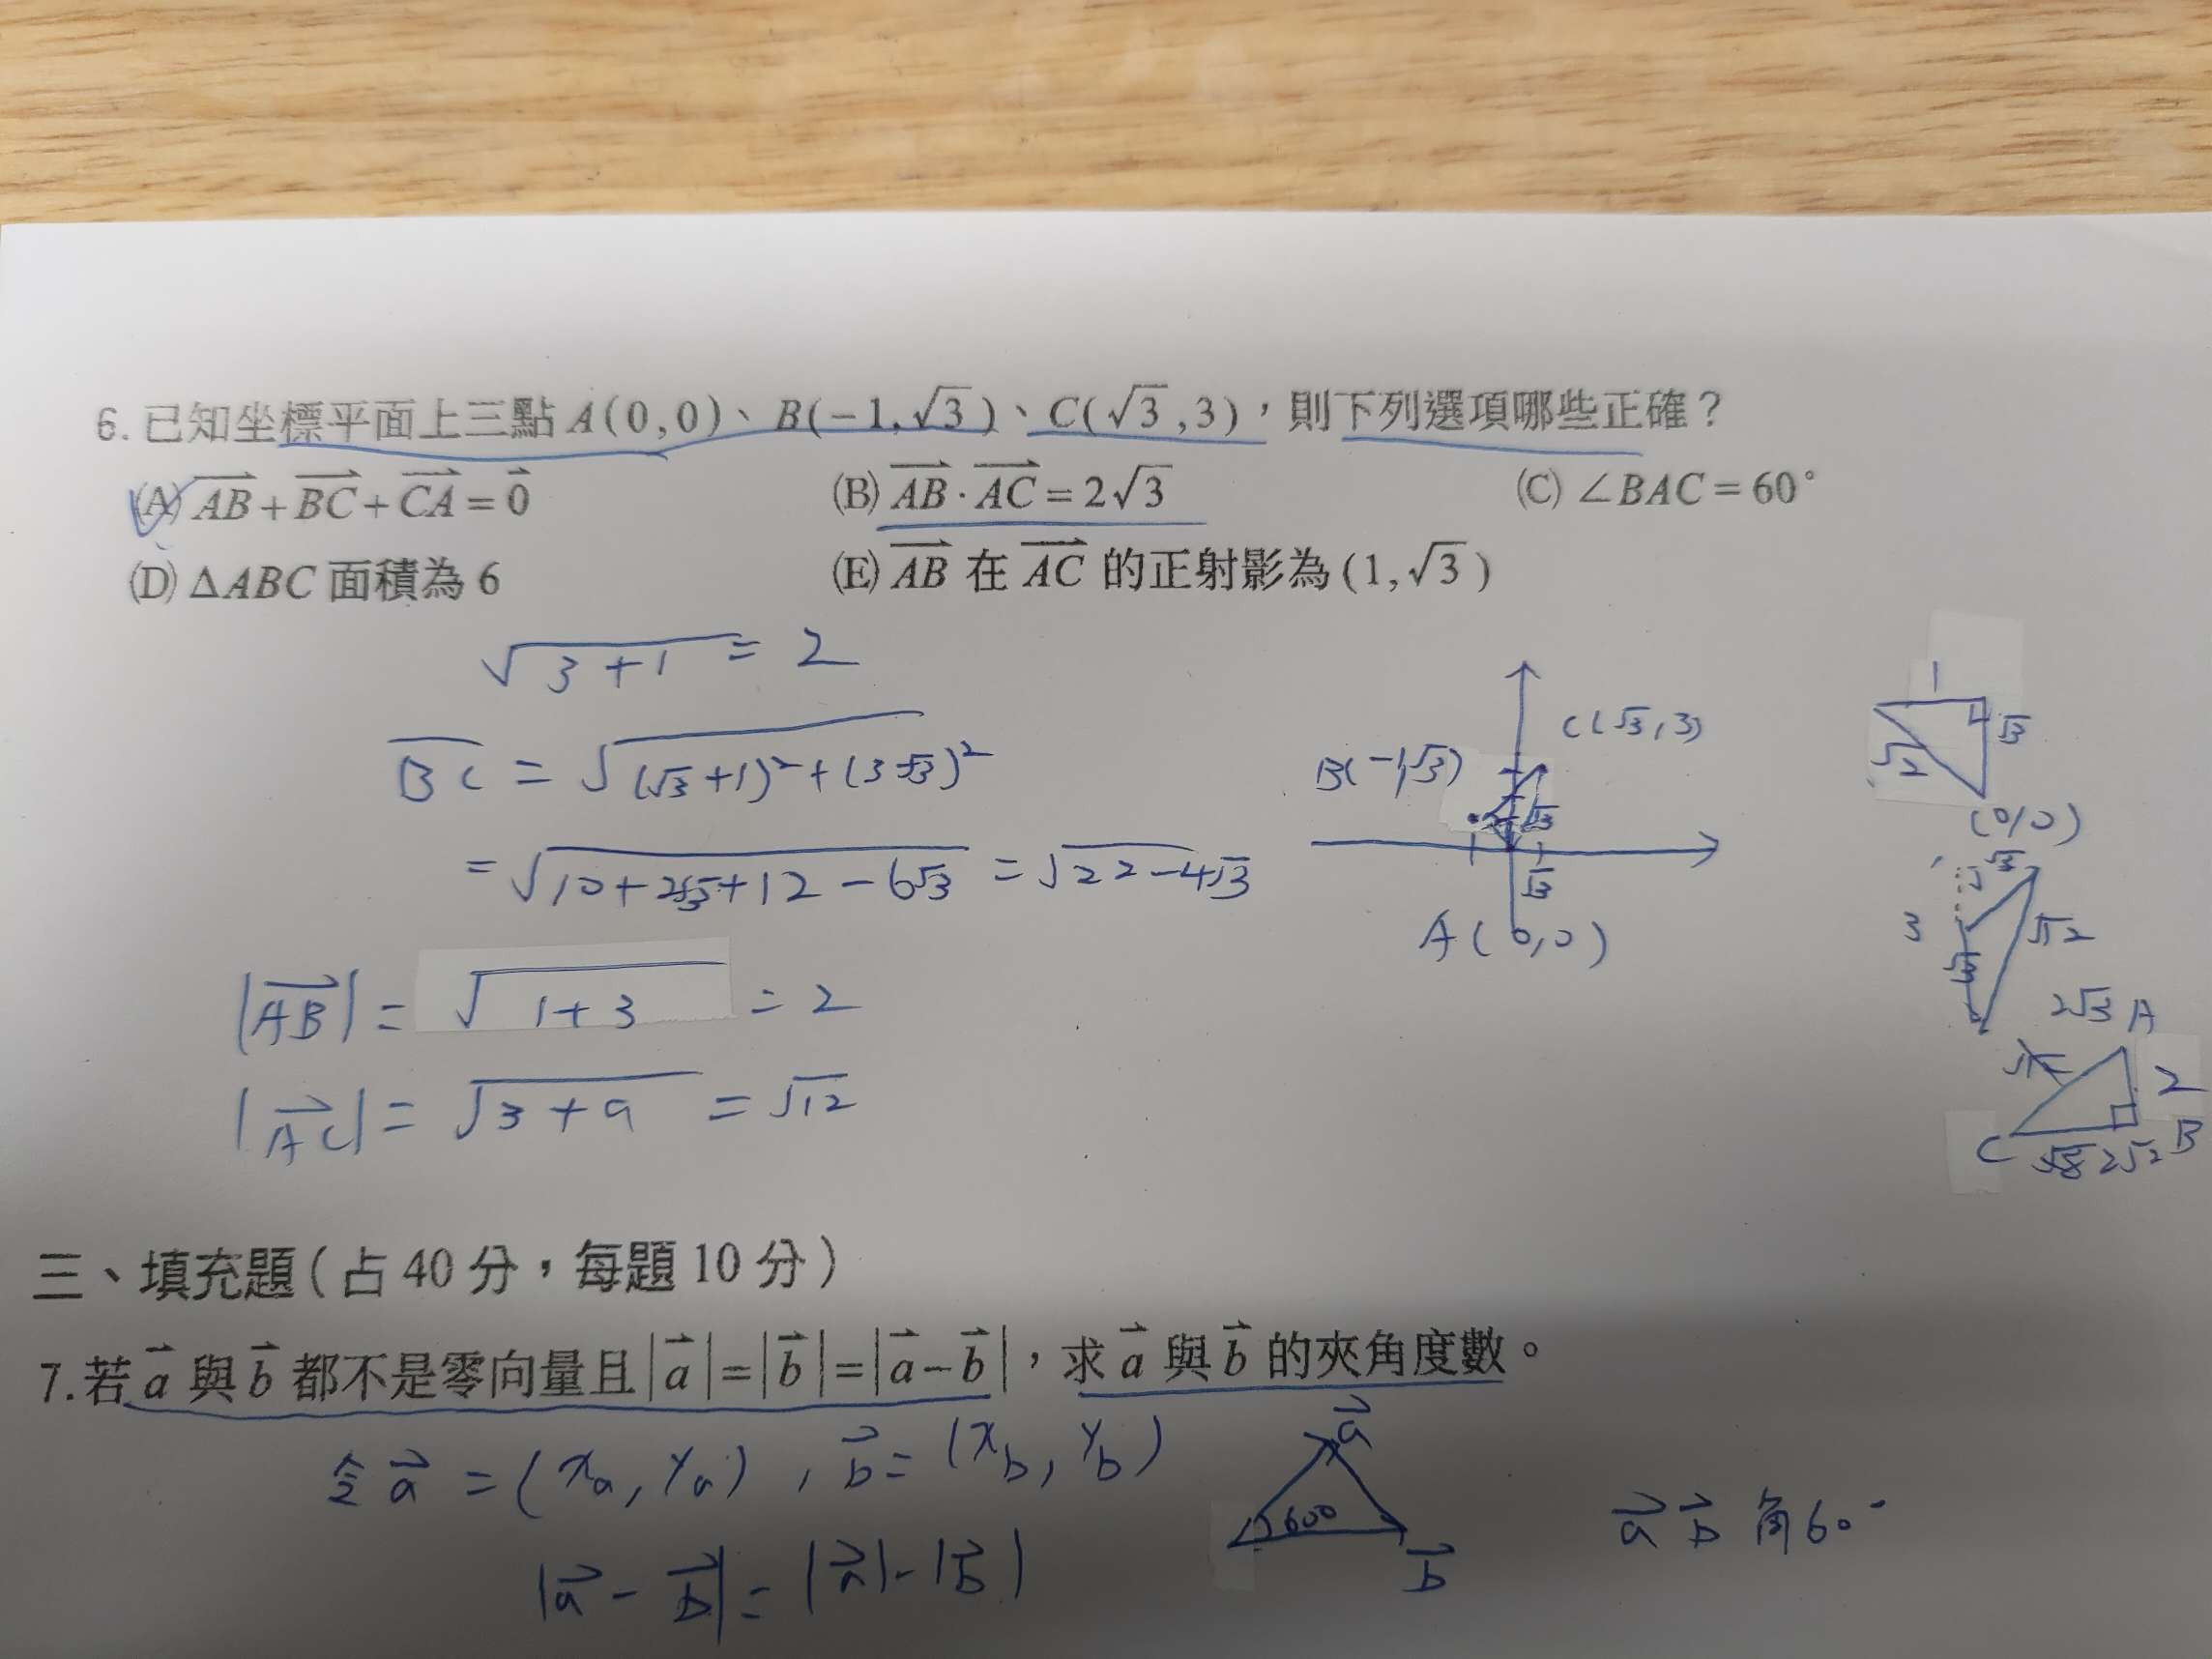 6. 已知坐標平面上三點 A(0,0)、B(-1,√3)、C(√3,3)，則下列選項哪些正確？
(A) AB⃗ + BC⃗ + CA⃗ = 0⃗ (B) AB⃗ · AC⃗ = 2√3 (C) ∠BAC = 60°
(D) ΔABC 面積為 6 (E) AB⃗ 在 AC⃗ 的正射影為 (1,√3)
√(3+1) = 2
BC = √((√3+1)²+(3-√3)²)
= √(10+2√3+12-6√3) = √(22-4√3)
|AB⃗| = √(1+3) = 2
|AC⃗| = √(3+9) = √12
C(√3,3)
B(-1,√3)
√3
√3
A(0,0)
1
√3
√2
(0,0)
√3
3
√12
√3
2√3 A
2
C √8 2√2 B
三、填充題(占40分，每題10分)
7. 若 a⃗ 與 b⃗ 都不是零向量且 |a⃗|=|b⃗|=|a⃗-b⃗|，求 a⃗ 與 b⃗ 的夾角度數。
令 a⃗ = (xa, ya), b⃗ = (xb, yb)
a⃗
60°
b⃗
a⃗ b⃗ 角60°
|a⃗ - b⃗| = |a⃗| - |b⃗|